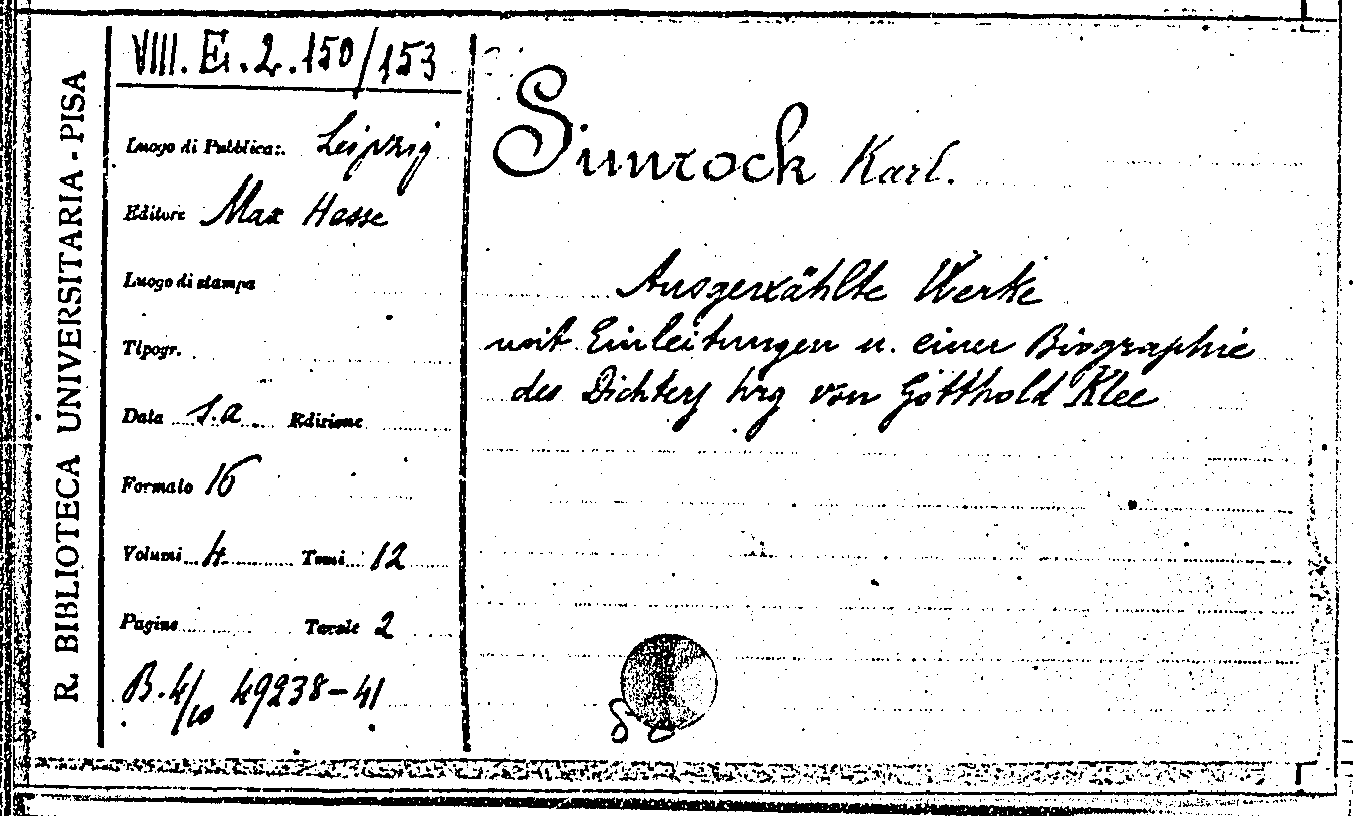 R. BIBLIOTECA UNIVERSITARIA - PISA
VIII. E. 2. 150/153
Luogo di Pubblica:. Leipzig
Editore Max Hasse
Luogo di stampa
Tipogr.
Data s.a. Edizione
Formato 16
Volumi 4 Tomi 12
Pagine Tavole 2
B. 4/10 49238-41
Simrock Karl.
Ausgewählte Werke
mit Einleitungen u. einer Biographie
des Dichters hrg von Gotthold Klee